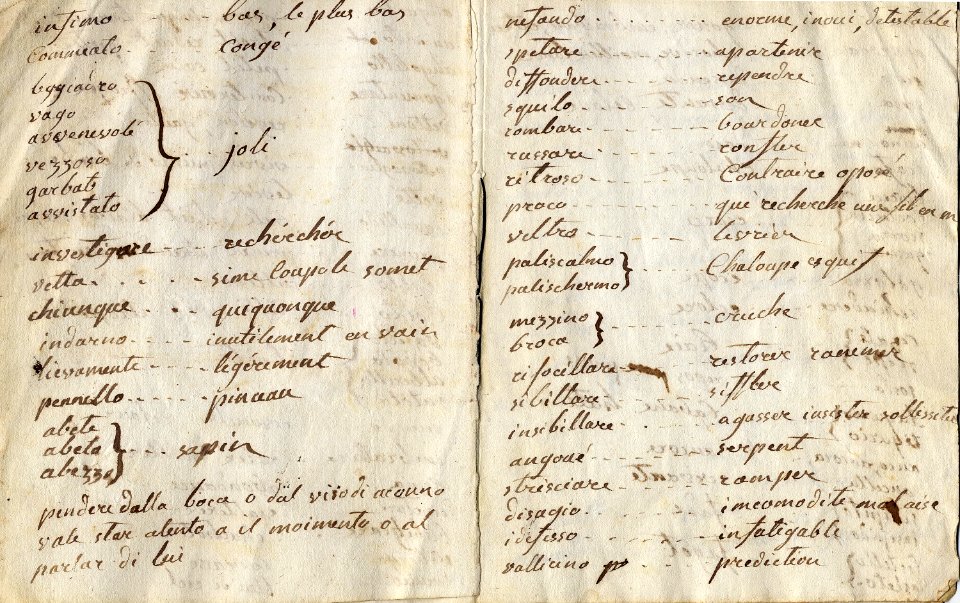 infimo ... bas, le plus bas
Commiato ... congé
leggiadro
vago
avvenevole
vezzoso
garbato
avvistato
joli
investigare ... rechérchér
vetta ... sime Coupole somet
chiunque ... quiquonque
indarno ... inutilement en vain
lievamente ... légérement
pennello ... pinceau
abete
abeto
abezzo
... sapin
pendere dalla boca o dal viso di
vale star atento a il moimento o al
parlar di lui
nefando ... enorme, inoui, detestable
spetare ... apartenir
diffondere ... rependre
squilo ... son
rombare ... bourdoner
russare ... ronfler
retroso ... Contraire oposé
proco ... qui recherche une
veltro ... levrier
paliscalmo
palischermo
... Chaloupe esquif
mezzino
broca
... cruche
rifocillare ... restorer
sibillare ... siffler
insibillare ... agasser insister
angoué ... serpent
strisciare ... ramper
disagio ... incomodite malaise
idefesso ... infatigable
vallicino ... prediction